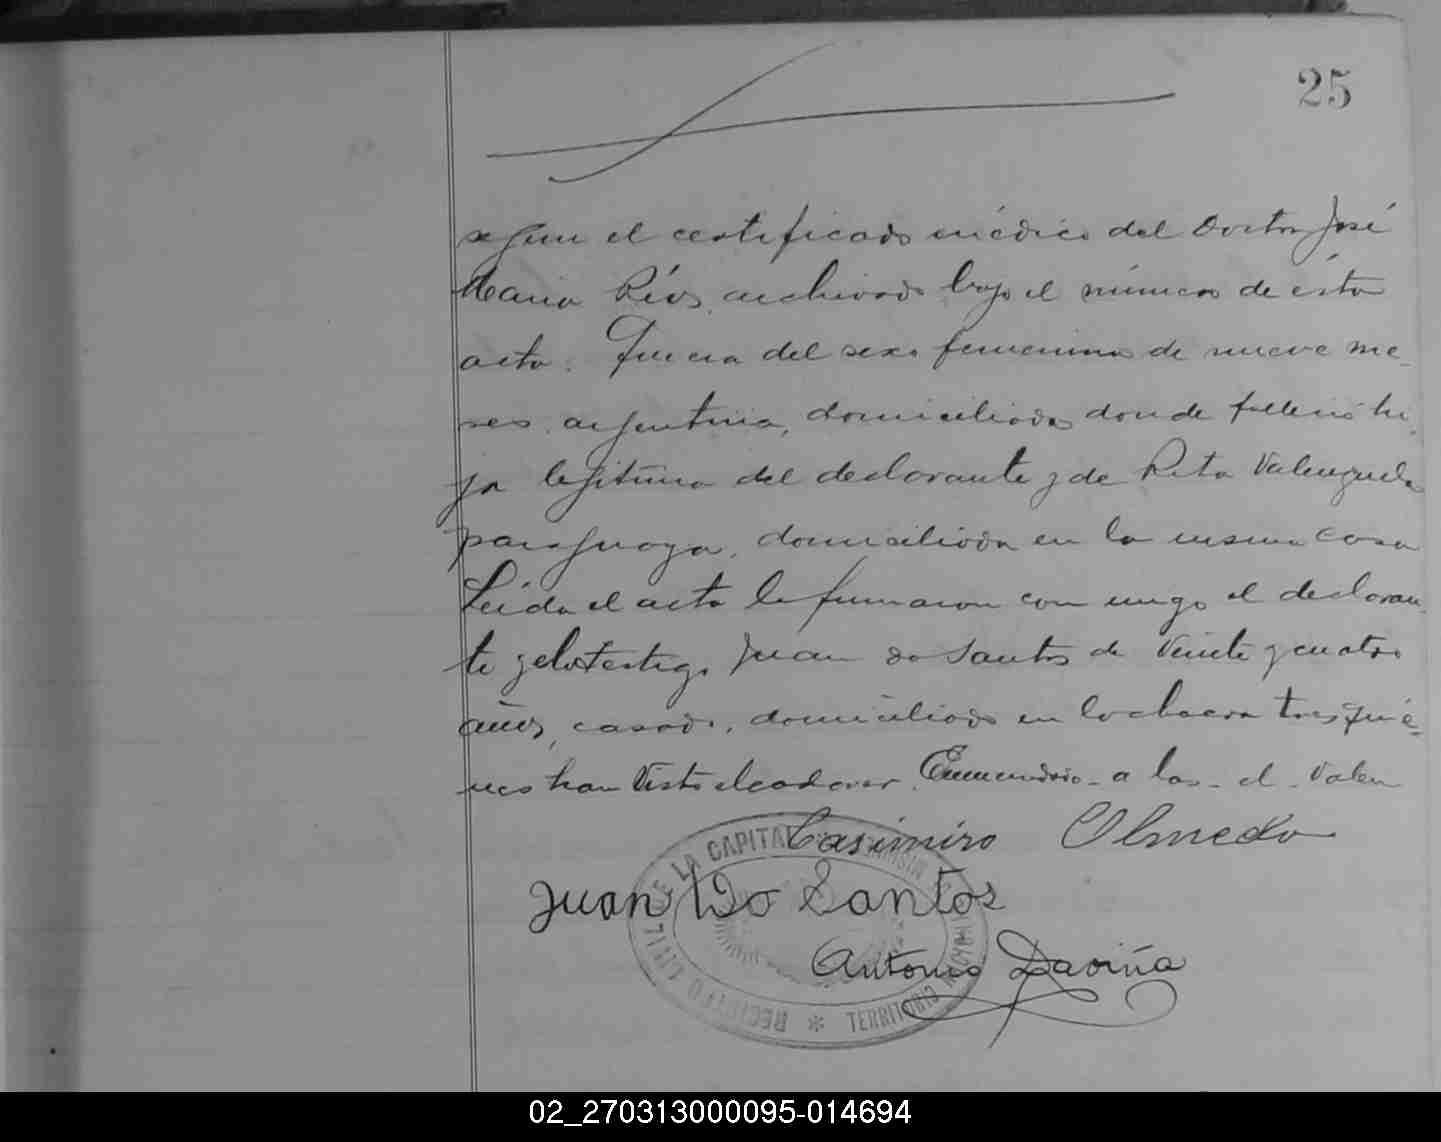 25
segun el certificado médico del Doctor José
Maria Ríos, archivado bajo el número de ésta
acta. Que era del sexo femenino de nueve me-
ses, argentina, domiciliada donde falleció hi-
ja legítima del declarante y de Rita Valenzuela
paraguaya, domiciliada en la misma casa
Leida el acta la firmaron conmigo el declaran
te y el testigo Juan do Santos de veinte y cuatro
años, casado, domiciliado en la chacra tres quié-
nes han visto el cadaver. Enmendado - a las - el - Valen
Casimiro Olmedo
Juan Do Santos
Antonio Daviña
REGISTRO CIVIL DE LA CAPITAL
* TERRITORIO NACIONAL
02_270313000095-014694